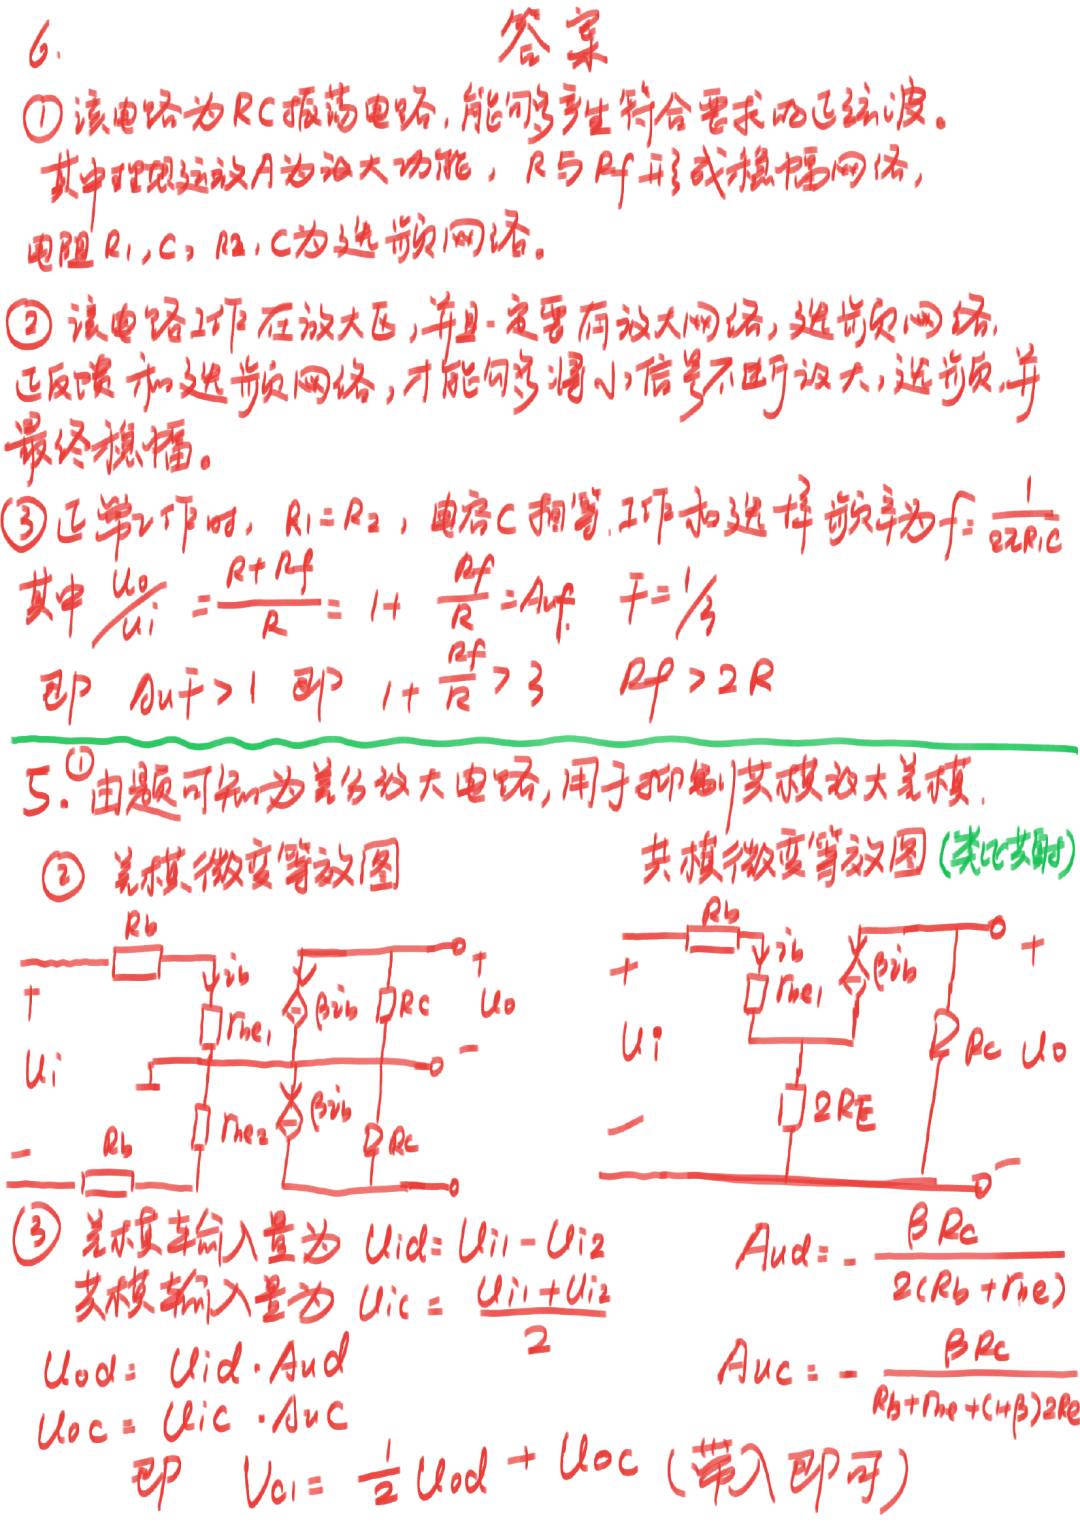 答案
6.
① 该电路为RC振荡电路,能够产生符合要求的正弦波。
其中理想运放A为放大功能, R与Rf形成稳幅网络,
电阻R1,C,R2,C为选频网络。
② 该电路工作在放大区,并且一定要有放大网络,选频网络,
正反馈和选频网络,才能够将小信号不断放大,选频,并
最终稳幅。
③ 正常工作时, R1=R2, 电容C相等,工作和选择频率为f=1/2πR1C
其中 Uo/Ui = R+Rf/R = 1+ Rf/R = Auf. F=1/3
即 AuF>1 即 1+ Rf/R >3 Rf>2R
5.① 由题可知为差分放大电路,用于抑制共模放大差模.
② 差模微变等效图 共模微变等效图(类比共射)
Rb ib rbe1 βib Rc + Uo -
+ Ui -
Rb rbe2 βib Rc
Rb ib rbe1 βib Rc + Uo -
+ Ui -
2RE
③ 差模输入量为 Uid=Ui1-Ui2 Aud=- βRc/2(Rb+rbe)
共模输入量为 Uic= Ui1+Ui2/2
Uod= Uid·Aud Auc=- βRc/Rb+rbe+(1+β)2Re
Uoc= Uic·Auc
即 Vc1= 1/2 Uod + Uoc (带入即可)